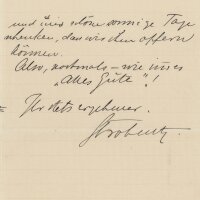 und uns schöne sonnige Tage
schenken, das wir dem opfern
können.
Also, nochmals – wie immer
„Alles Gute“!
Ihr stets ergebener